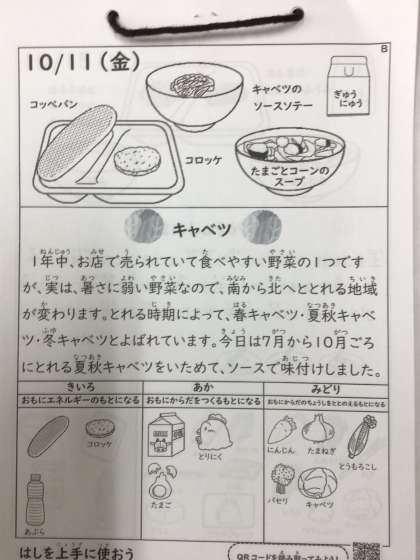 8
10/11(金)
コッペパン
キャベツの
ソースソテー
ぎゅう
にゅう
コロッケ
たまごとコーンの
スープ
キャベツ
1年中、お店で売られていて食べやすい野菜の1つです
が、実は、暑さに弱い野菜なので、南から北へととれる地域
が変わります。とれる時期によって、春キャベツ・夏秋キャベ
ツ・冬キャベツとよばれています。今日は7月から10月ごろ
にとれる夏秋キャベツをいためて、ソースで味付けしました。
きいろ
あか
みどり
おもにエネルギーのもとになる
おもにからだをつくるもとになる
おもにからだのちょうしをととのえるもとになる
コロッケ
あぶら
とりにく
たまご
にんじん
たまねぎ
とうもろこし
パセリ
キャベツ
はしを上手に使おう
QRコードを読み取ってみよう!